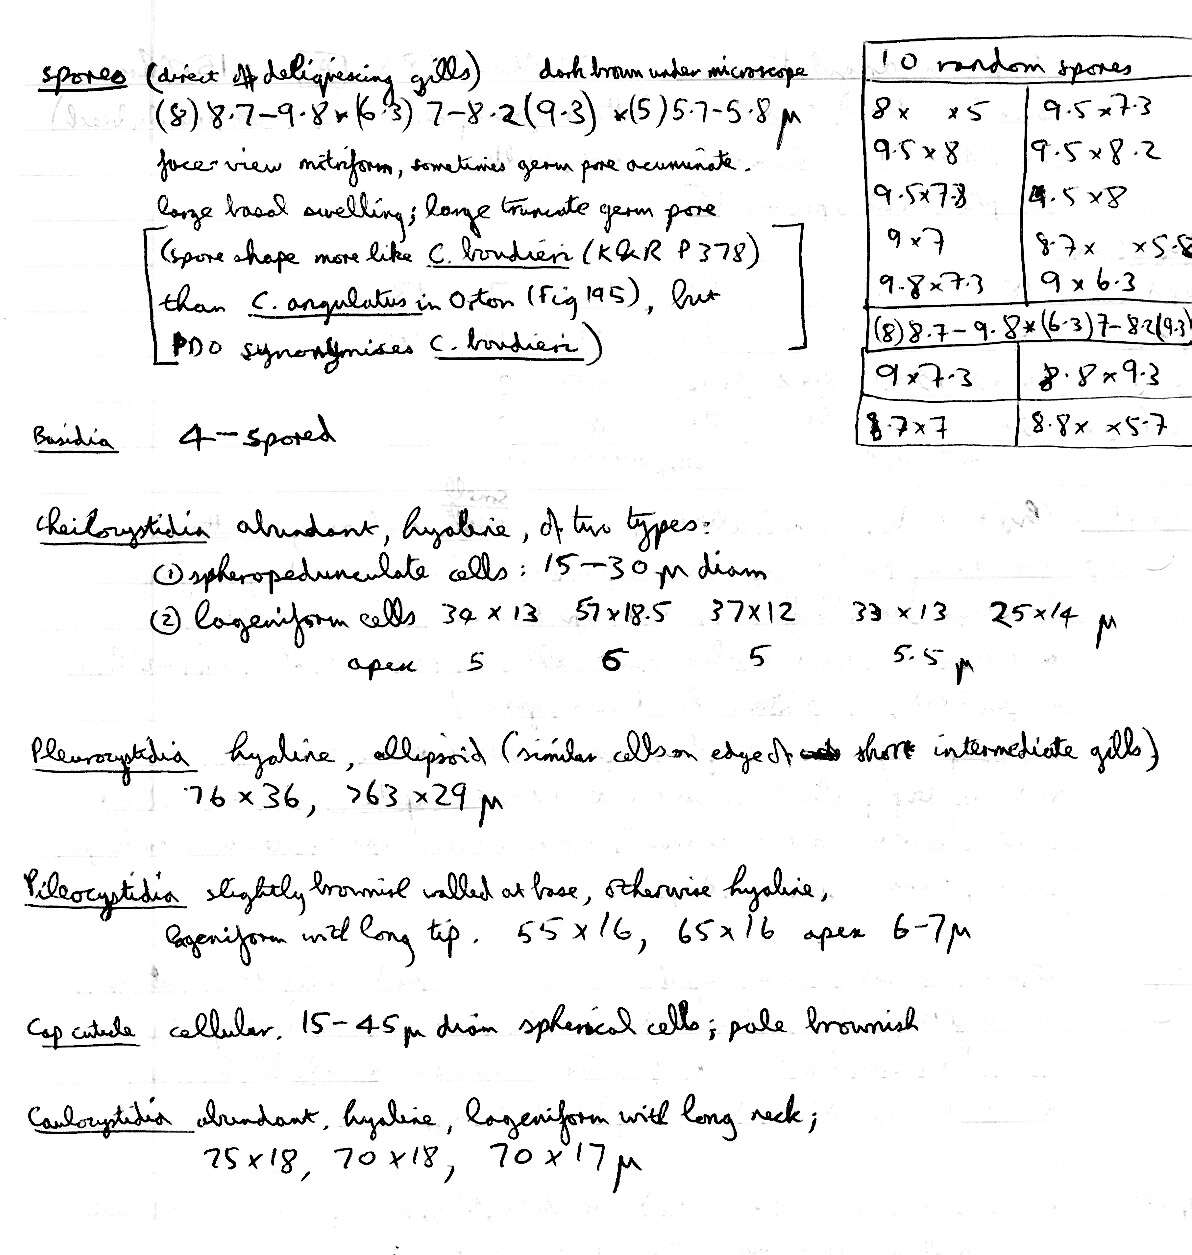 spores (direct of deliquescing gills) dark brown under microscope
(8) 8.7-9.8 × (6.3) 7-8.2 (9.3) × (5) 5.7-5.8 μ
face-view mitriform, sometimes germ pore acuminate.
large basal swelling; large truncate germ pore
[(spore shape more like C. boudieri (K&R P 378)
than C. angulatus in Orton (Fig 195), but
PDO synonymises C. boudieri)]
10 random spores
8 × × 5 9.5 × 7.3
9.5 × 8 9.5 × 8.2
9.5 × 7.8 9.5 × 8
9 × 7 8.7 × × 5.8
9.8 × 7.3 9 × 6.3
(8) 8.7 - 9.8 × (6.3) 7 - 8.2 (9.3)
9 × 7.3 8.8 × 9.3
8.7 × 7 8.8 × × 5.7
Basidia 4-spored
Cheilocystidia abundant, hyaline, of two types:
(1) spheropedunculate cells: 15-30 μ diam
(2) lageniform cells 34 × 13 57 × 18.5 37 × 12 33 × 13 25 × 14 μ
apex 5 6 5 5.5 μ
Pleurocystidia hyaline, ellipsoid (similar cells on edge of short intermediate gills)
76 × 36, >63 × 29 μ
Pileocystidia slightly brownish walled at base, otherwise hyaline,
lageniform with long tip. 55 × 16, 65 × 16 apex 6-7 μ
Cap cuticle cellular. 15-45 μ diam spherical cells; pale brownish
Caulocystidia abundant, hyaline, lageniform with long neck;
75 × 18, 70 × 18, 70 × 17 μ